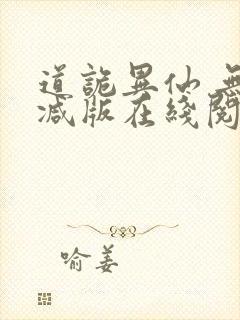 道詭異仙 無
减版在綫閱
喻姜